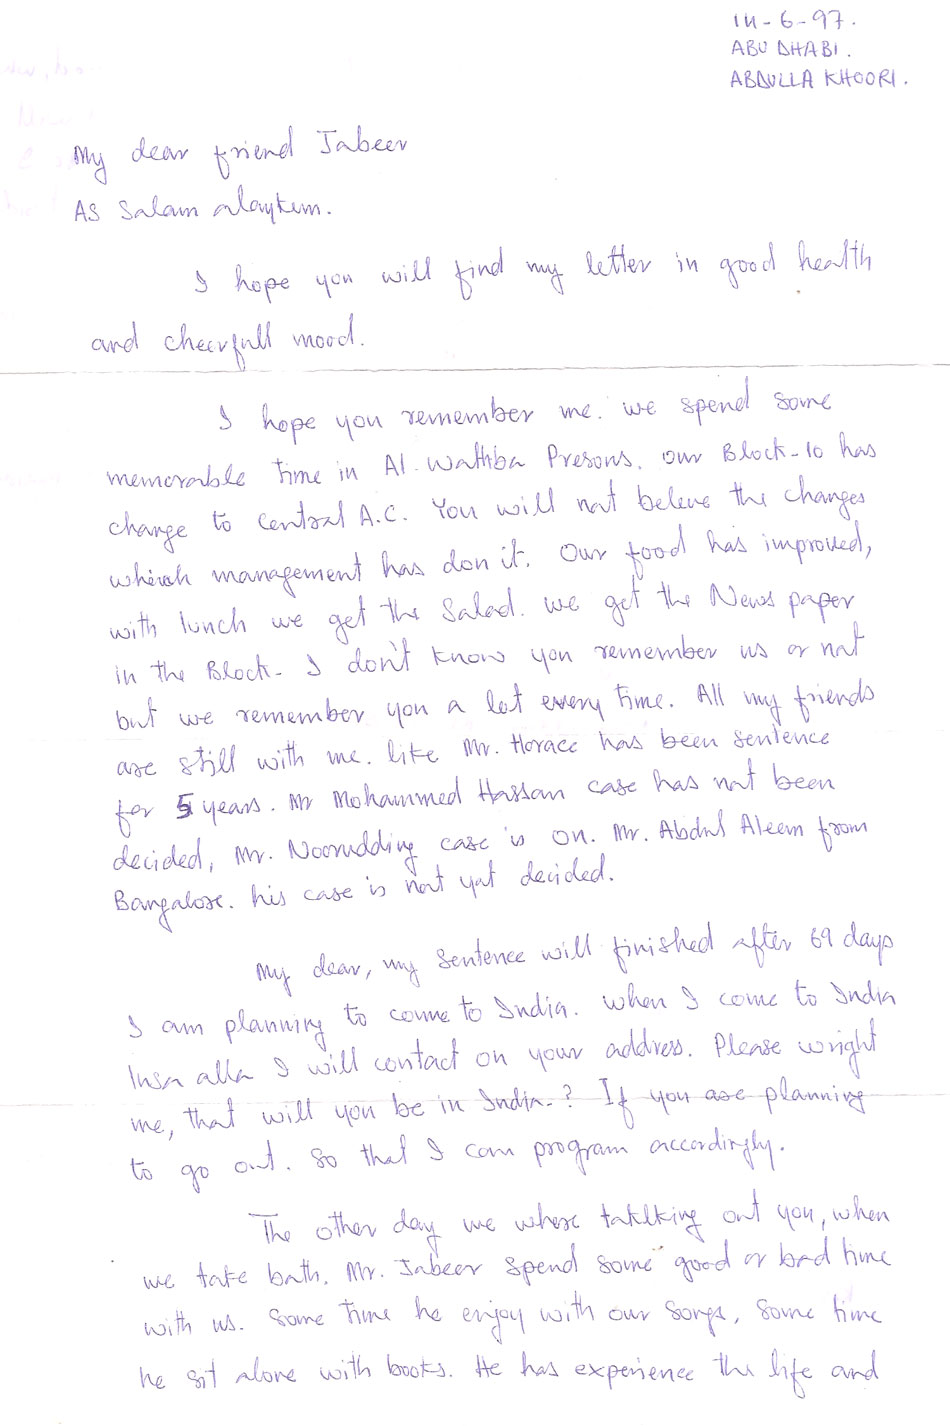 14-6-97.
ABU DHABI.
ABDULLA KHOORI.
My dear friend Jabeer
As Salam alaykum.
I hope you will find my letter in good health
and cheerfull mood.
I hope you remember me. we spend some
memorable time in Al. Wathba Presons. our Block-10 has
change to Central A.C. You will not beleve the changes
which management has don it. Our food has improved,
with lunch we get the Salad. we get the News paper
in the Block- I don't know you remember us or not
but we remember you a lot every time. All my friends
are still with me. like Mr. Horace has been sentence
for 5 years. Mr Mohammed Hassan case has not been
decided, Mr. Noorudding case is on. Mr. Abdul Aleem from
Bangalore. his case is not yat decided.
My dear, my sentence will finished after 69 days
I am planning to come to India. when I come to India
Insa alla I will contact on your address. Please wright
me, that will you be in India-? If you are planning
to go out. so that I can program accordingly.
The other day we where taklking out you, when
we take bath. Mr. Jabeer spend some good or bad time
with us. Some time he enjoy with our songs, some time
he sit alone with books. He has experience the life and